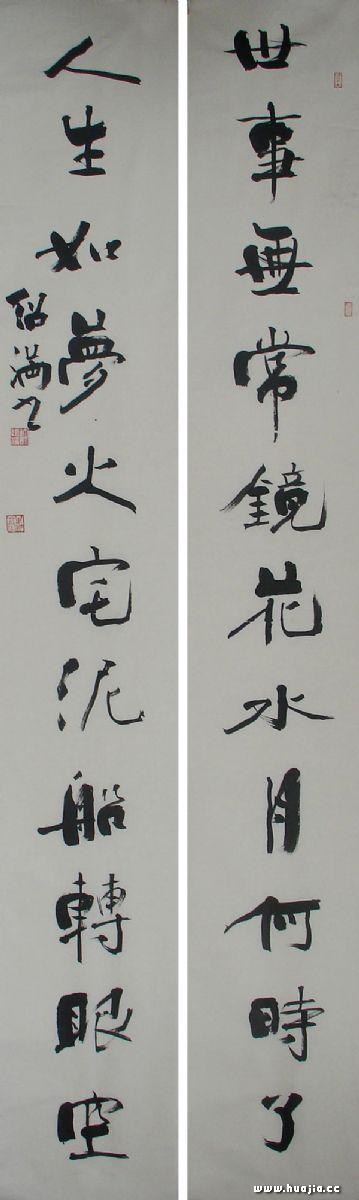 世事無常鏡花水月何時了
人生如夢火宅泥船轉眼空
www.huajia.cc